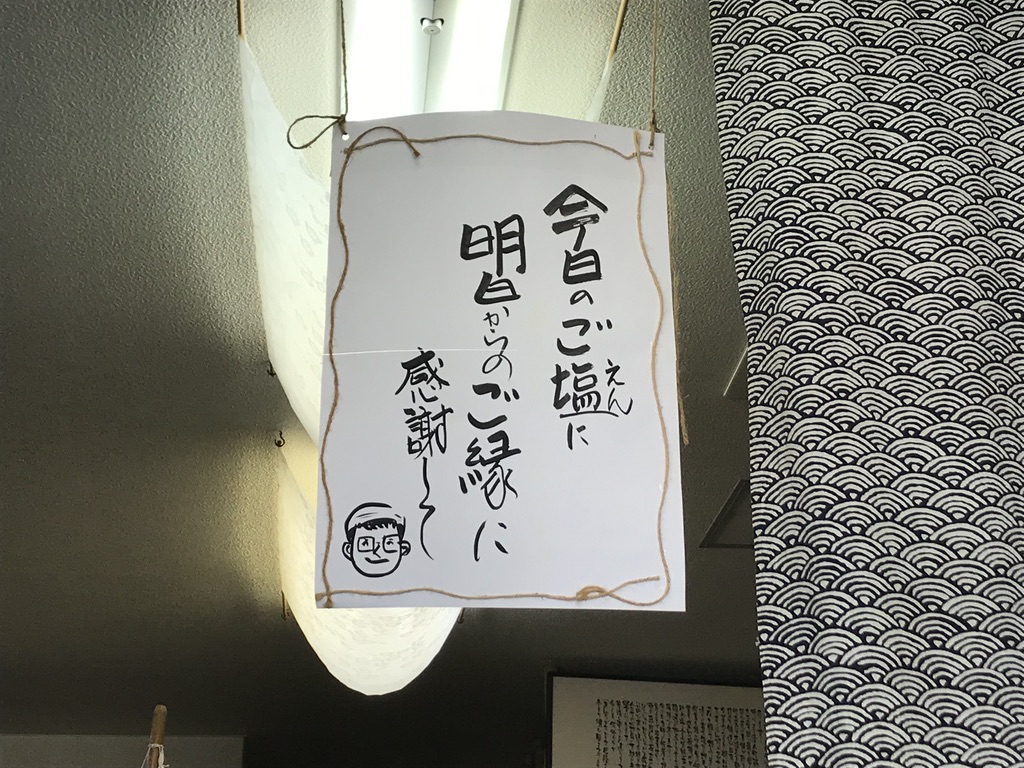 今日のご塩に
えん
明日からのご縁に
感謝〜〜